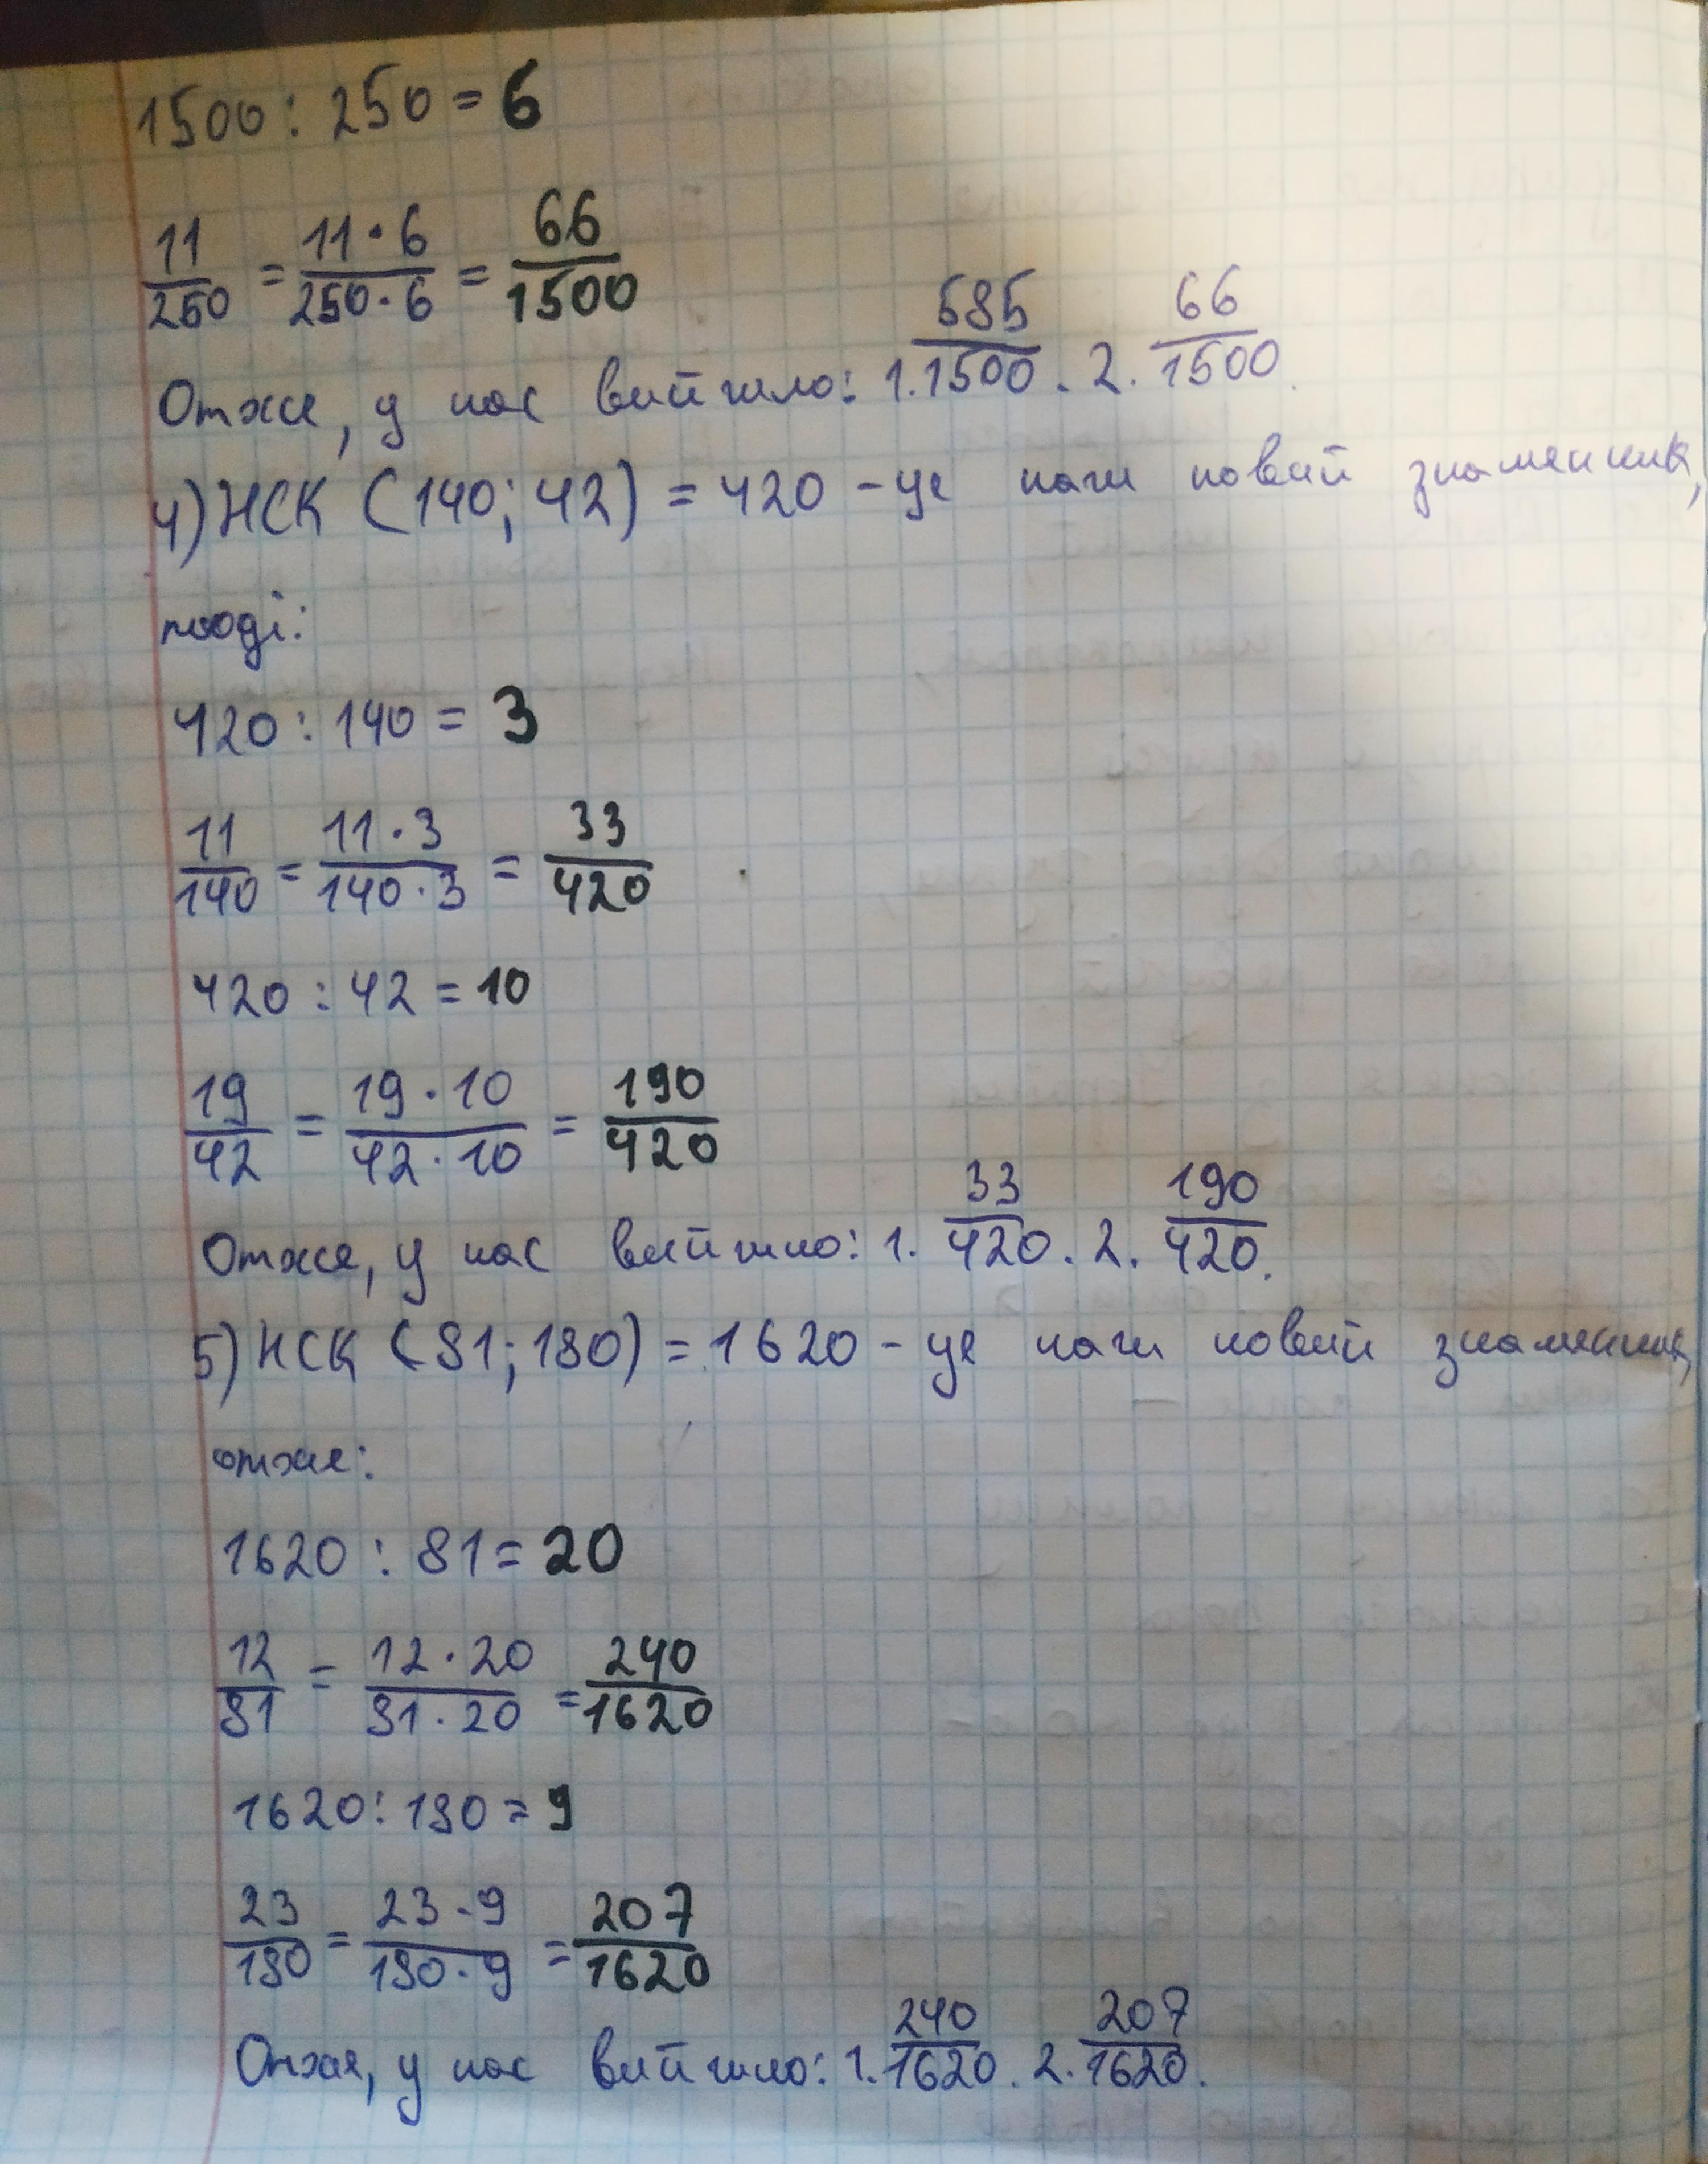 1500 : 250 = 6
11/250 = 11·6/250·6 = 66/1500
Отже, у нас вийшло: 1. 585/1500. 2. 66/1500.
4) НСК (140; 42) = 420 - це наш новий знаменник,
тоді:
420 : 140 = 3
11/140 = 11·3/140·3 = 33/420
420 : 42 = 10
19/42 = 19·10/42·10 = 190/420
Отже, у нас вийшло: 1. 33/420. 2. 190/420.
5) НСК (81; 180) = 1620 - це наш новий знаменник,
отже:
1620 : 81 = 20
12/81 = 12·20/81·20 = 240/1620
1620 : 180 = 9
23/180 = 23·9/180·9 = 207/1620
Отже, у нас вийшло: 1. 240/1620. 2. 207/1620.